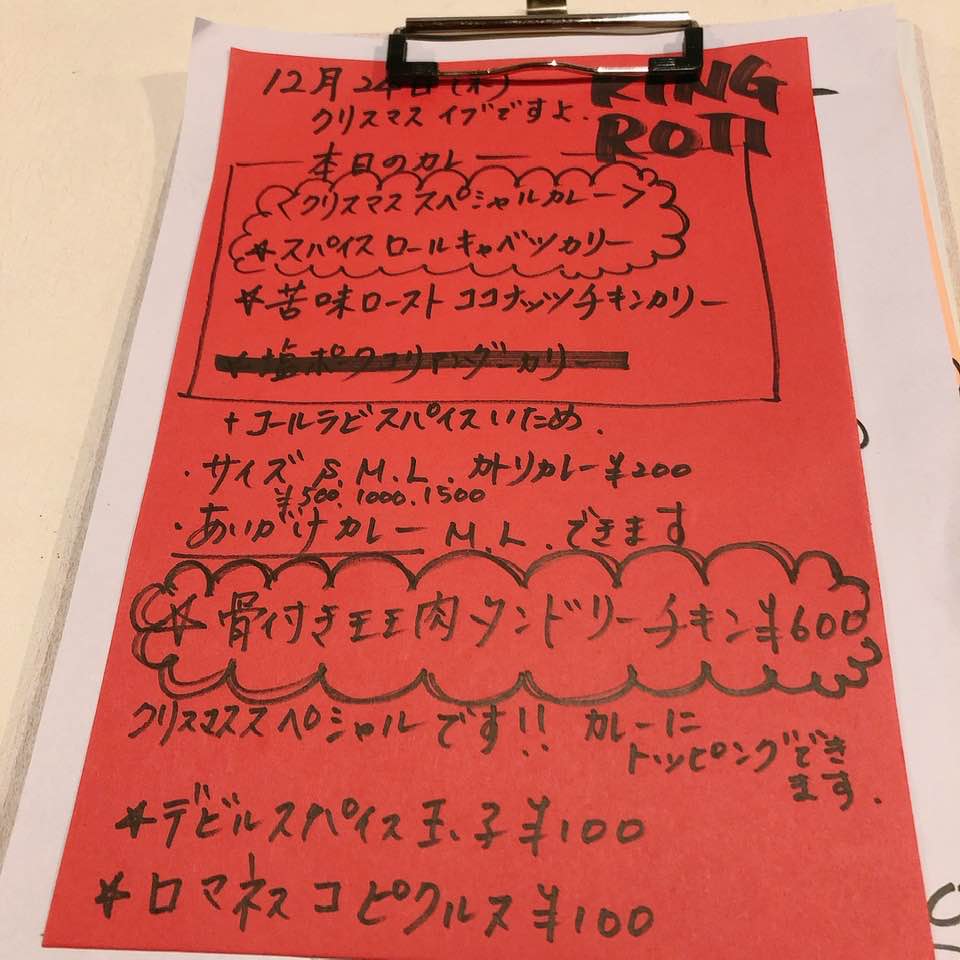 12月24日(木)
KING
ROTI
クリスマスイブですよ.
本日のカレー
<クリスマススペシャルカレー>
*スパイスロールキャベツカリー
*苦味ローストココナッツチキンカリー
*塩ポークコリアンダーカリー
+コールラビスパイスいため.
・サイズ S.M.L. カトリカレー¥200
¥500.1000.1500
・あいがけカレーM.L.できます
☆骨付きモモ肉タンドリーチキン¥600
クリスマススペシャルです!! カレーに
トッピングでき
ます.
*デビルスパイス玉子¥100
*ロマネスコピクルス¥100